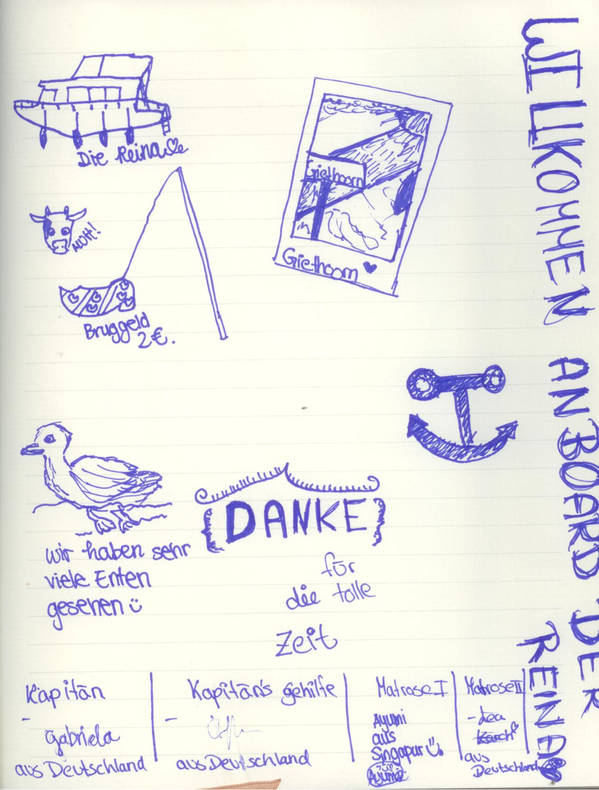 WILLKOMMEN AN BOARD DER
REINA
Die Reina
MUH!
Bruggeld
2€.
Giethoorn
Giethoorn
wir haben sehr
viele Enten
gesehen
DANKE
für
die tolle
Zeit
Kapitän
-
Gabriela
aus Deutschland
Kapitän's gehilfe
-
aus Deutschland
Matrose I
Ayumi
aus
Singapur
Matrose II
- Lea
aus
Deutschland